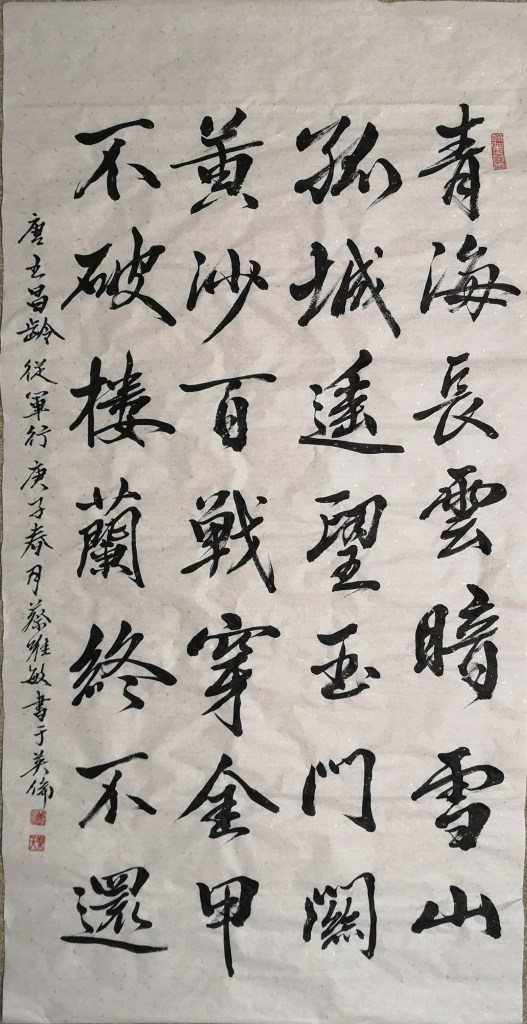 青海長雲暗雪山
孤城遥望玉門關
黄沙百戰穿金甲
不破楼蘭終不還
唐王昌齡從軍行庚子春月蔡雅敏書于英倫